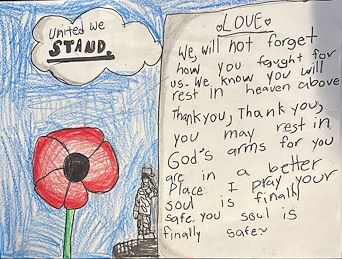 United We
STAND.
LOVE
We, will not forget
how you fought for
us. We know you will
rest in heaven above
Thank you, Thank you,
you may rest in
God's arms for you
are in a better
Place I pray your
soul is finally
safe. you soul is
finally safe~